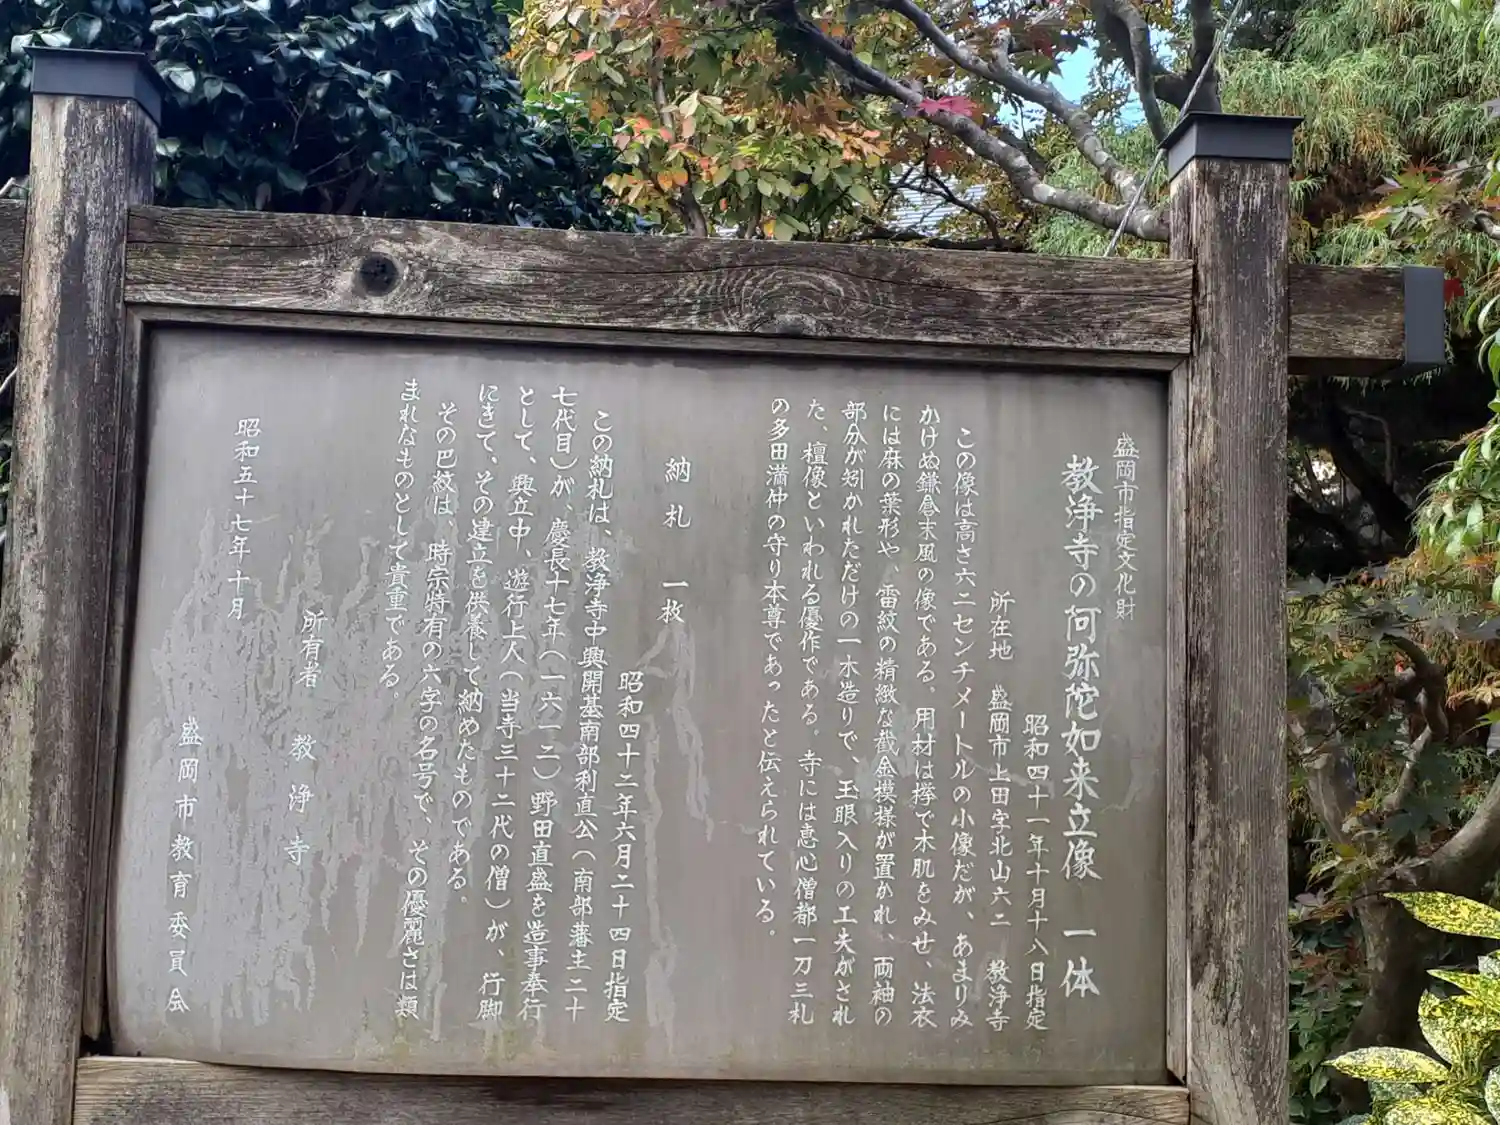 盛岡市指定文化財
教浄寺の阿弥陀如来立像　一体
昭和四十一年十月十八日指定
所在地　盛岡市上田字北山六二　教浄寺
この像は高さ六二センチメートルの小像だが、あまりみ
かけぬ鎌倉末風の像である。用材は欅で木肌をみせ、法衣
には麻の葉形や、雷紋の精緻な截金模様が置かれ、両袖の
部分が矧かれただけの一木造りで、玉眼入りの工夫がされ
た、檀像といわれる優作である。寺には恵心僧都一刀三札
の多田満仲の守り本尊であったと伝えられている。
納札　一枚
昭和四十二年六月二十四日指定
この納札は、教浄寺中興開基南部利直公（南部藩主二十
七代目）が、慶長十七年（一六一二）野田直盛を造事奉行
として、興立中、遊行上人（当寺三十二代の僧）が、行脚
にきて、その建立を供養して納めたものである。
その巴紋は、時宗特有の六字の名号で、その優麗さは類
まれなものとして貴重である。
所有者　教浄寺
昭和五十七年十月
盛岡市教育委員会